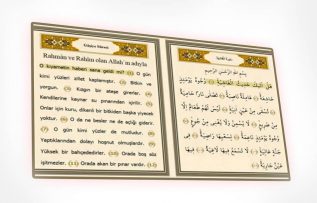 Ğâşiye Sûresi
Rahmân ve Rahîm olan Allah'ın adıyla
O kıyametin haberi sana geldi mi? (1) O gün
kimi yüzleri zillet kaplamıştır. (2) Bitkin ve
yorgun. (3) Kızgın bir ateşe girerler. (4)
Kendilerine kaynar su pınarından içirilir. (5)
Onlar için kuru, dikenli bir bitkiden başka yiyecek
yoktur. (6) O da ne besler ne de açlığı giderir.
(7) O gün kimi yüzler de mutludur. (8)
Yaptıklarından dolayı hoşnut olmuşlardır. (9)
Yüksek bir bahçededirler. (10) Orada boş söz
işitmezler. (11) Orada akan bir pınar vardır. (12)
بِسْمِ اللَّهِ الرَّحْمَنِ الرَّحِيمِ
هَلْ أَتَيكَ حَدِيثُ الْغَاشِيَةِ وُجُوهٌ يَوْمَئِذٍ
خَاشِعَةٌ عَامِلَةٌ نَاصِبَةٌ تَصْلَى نَارًا حَامِيَةً
تُسْقَى مِنْ عَيْنٍ آنِيَةٍ لَيْسَ لَهُمْ طَعَامٌ إِلَّا
مِنْ ضَرِيعٍ لَا يُسْمِنُ وَلَا يُغْنِي مِنْ جُوعٍ
وُجُوهٌ يَوْمَئِذٍ نَاعِمَةٌ لِسَعْيِهَا رَاضِيَةٌ فِي
جَنَّةٍ عَالِيَةٍ لَا تَسْمَعُ فِيهَا لَاغِيَةً فِيهَا
عَيْنٌ جَارِيَةٌ